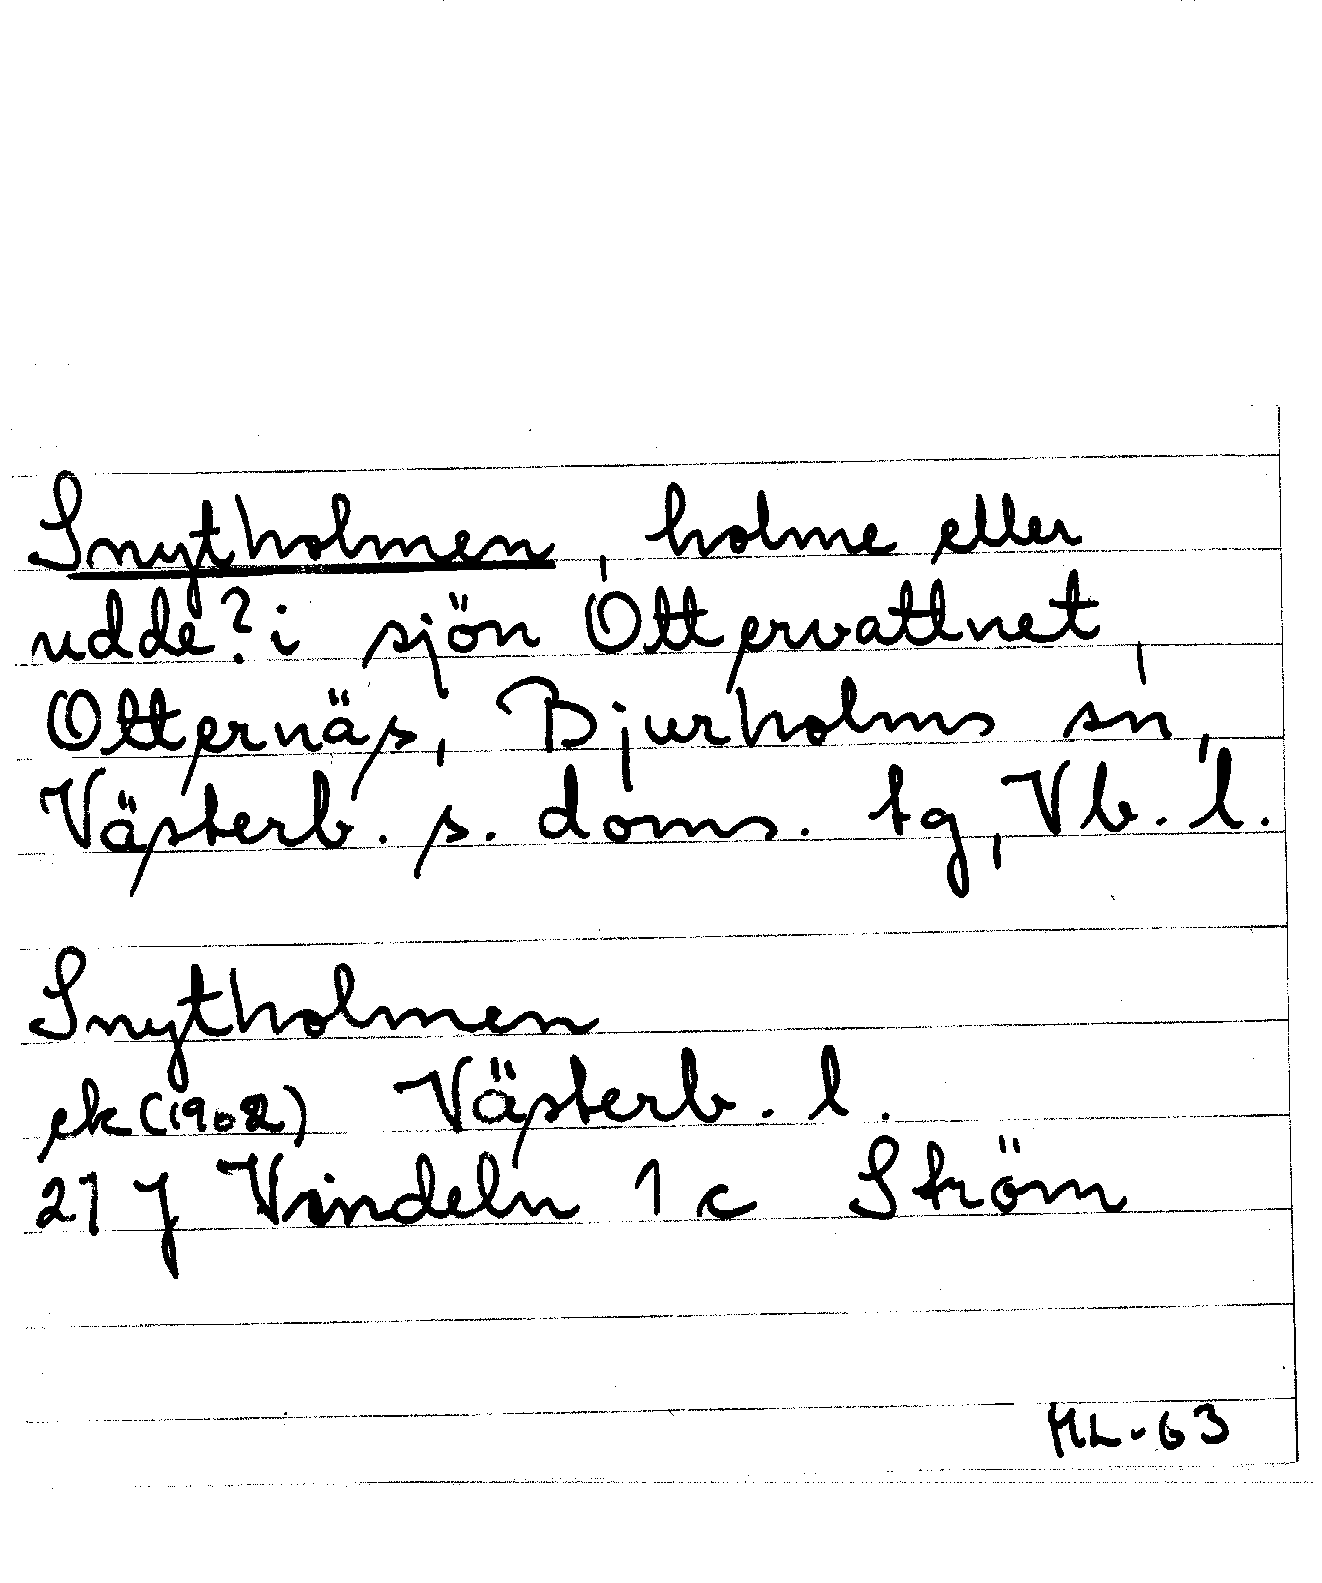 Snytholmen, holme eller
udde? i sjön Ottervattnet,
Otternäs, Bjurholms sn,
Västerb. s. doms. tg, Vb. l.
Snytholmen
ek (1902) Västerb. l.
21 J Vindeln 1 c Ström
ML-63